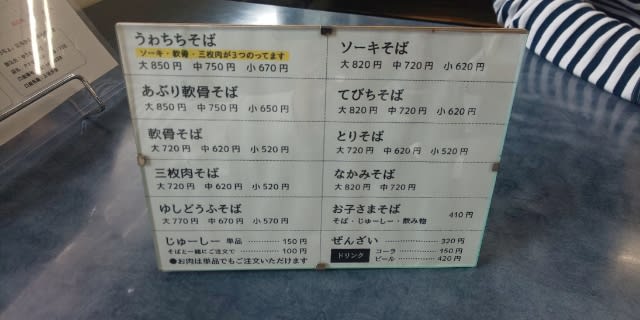 うわちちそば
ソーキ・軟骨・三枚肉が3つのってます
大850円 中750円 小670円
あぶり軟骨そば
大850円 中750円 小650円
軟骨そば
大720円 中620円 小520円
三枚肉そば
大720円 中620円 小520円
ゆしどうふそば
大770円 中670円 小570円
じゅーしー 単品 150円
そばと一緒にご注文で 100円
●お肉は単品でもご注文いただけます
ソーキそば
大820円 中720円 小620円
てびちそば
大820円 中720円 小620円
とりそば
大720円 中620円 小520円
なかみそば
大820円 中720円
お子さまそば
そば・じゅーしー・飲み物 410円
ぜんざい 320円
ドリンク コーラ 150円
ビール 420円